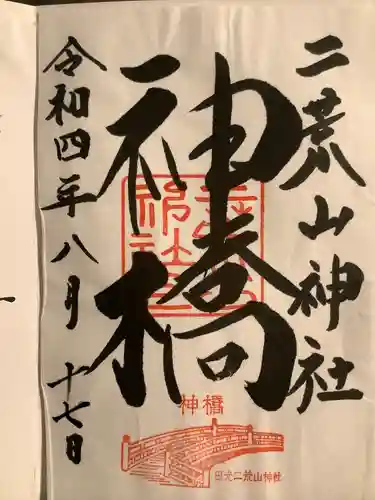 二荒山神社
神橋
令和四年八月十七日
神橋
日光二荒山神社